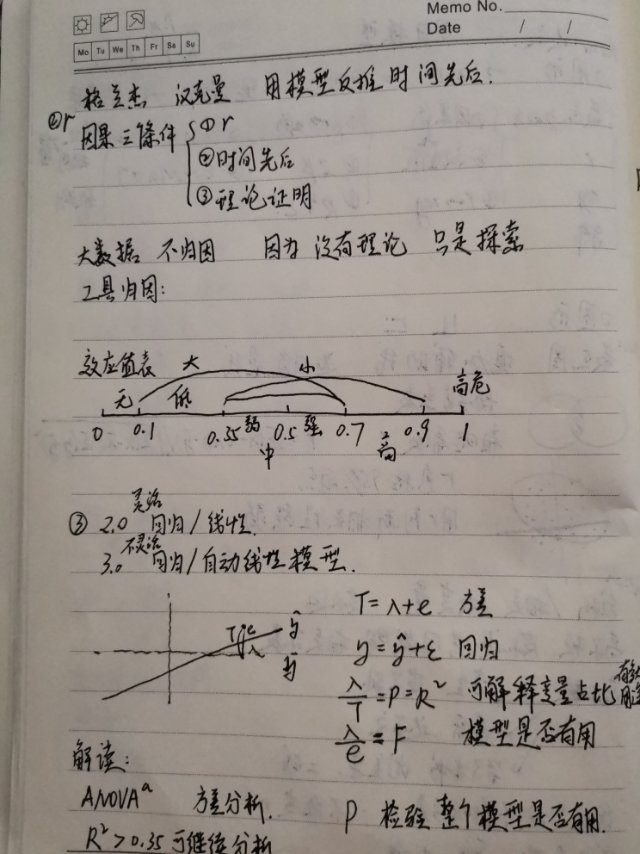 Memo No.
Date / /
Mo Tu We Th Fr Sa Su
格兰杰 汉克曼 用模型反推时间先后.
②r
因果三條件 ①r
②时间先后
③理论证明
大数据 不归因 因为 没有理论 只是探索
工具归因:
效应值表 大 小 高危
无 低 弱 强
0 0.1 0.35 0.5 0.7 0.9 1
中 高
灵活
③ 2.0 回归/线性.
不灵活
3.0 回归/自动线性模型.
T=λ+e 方差
T e ŷ
λ ȳ
y=ŷ+ε 回归
λ/T=P=R² 可解释变量占比
λ/e=F 模型是否有用
解读:
ANOVAᵃ 方差分析. P 检验整个模型是否有用.
R²>0.35可继续分析